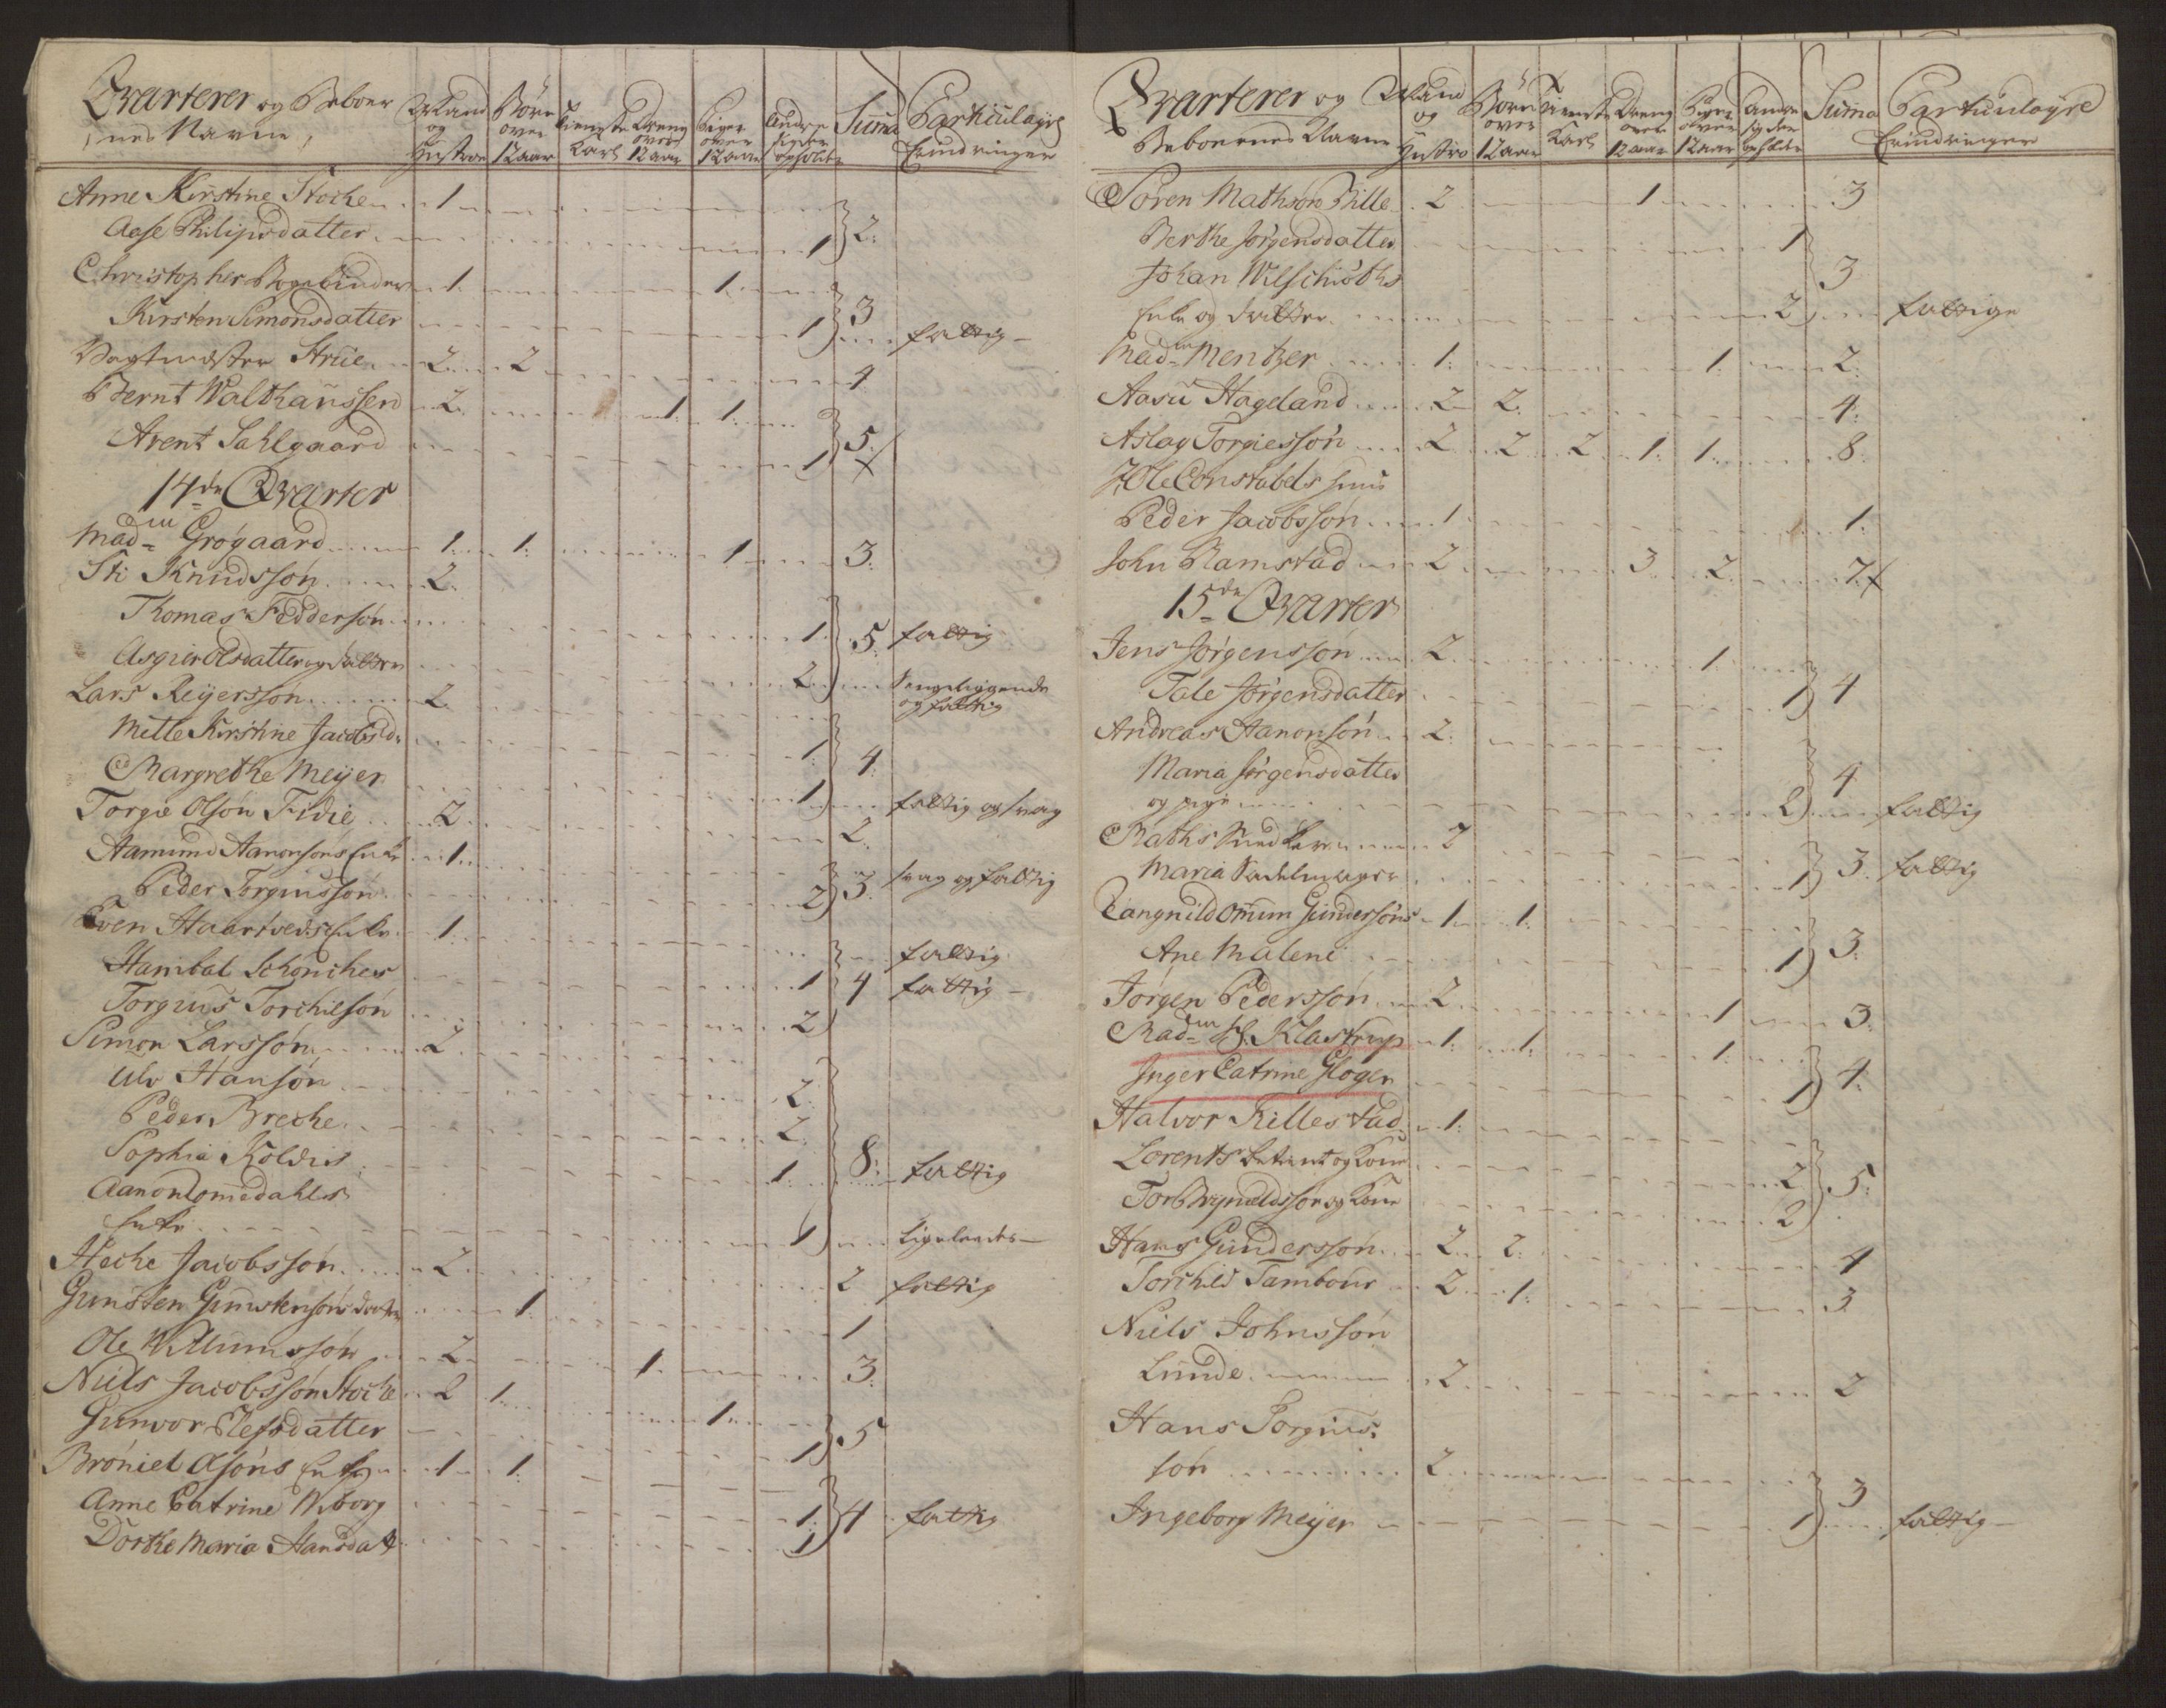 Qvarterer og Beboer
nes Navne,
Mand og Hustroe
Børn over 12 aar
Tieneste Karl
Dreng over 12 aar
Piger over 12 aar
Andre sig der opholder
Suma
Particulaire Erindringer
Anne Kirstine Stoche 1
Aase Philipsdatter 1 2:
Christopher Bogebinder 1 1
Kirsten Simonsdatter 1 3 fattig
Vagtmester Strue 2 2 4
Bernt Walthaussen 2 1 1
Arent Sahlgaard 1 5
14de Qvarter
Madm Grøgaard 1 1 1 3
Sti Knudssøn 2
Thomas Feddersøn 1 5 fattig
Asgier Olsdatter og datter 2 Sengeliggende
og fattig
Lars Reijerssøn 2
Mette Kirstine Jacobsd. 1 4
Margrethe Meijer 1 fattig og svag
Torgie Olsøn Fidie 2 2
Aamund Aanonsøns Enke 1
Peder Torgiussøn 2 3 svag og fattig
Even Haartveds Enke 1 fattig
Hanibal Schøniches 1 4 fattig
Torgius Torchilsøn 2
Simon Larssøn 2
Ulv Hansøn 2
Peder Breche 2
Sophia Koldis 1 8: fattig
Aanon Lomedahls
Enke 1 Ligeledes
Heche Jacobssøn 2 2 fattig
Gunsten Gunstensøns datter 1 1
Ole Willumssøn 2 1 3
Niels Jacobssøn Stoche 2 1 1
Gunvor Elefsdatter 1 5
Brøniel Olsøns Enke 1 1
Anne Catrine Wiborg 1 4 fattig
Dorthe Maria Hansdat 1
Qvarterer og
Beboernes Navne
Mand og Hustro
Børn over 12 aar
Tieneste Karl
Dreng over 12 aar
Piger over 12 aar
Andre sig der opholder
Suma
Particulaire Erindringer
Søren Mathsøn Bille 2 1 3
Berthe Jørgensdatter 1 3
Johan Wilschiøths
Enke og datter 2 fattige
Madm Mentzer 1 1 2
Aasu Hageland 2 2 4
Aslag Torgiessøn 2 2 2 1 1 8
I Ole Constabels huus
Peder Jacobssøn 1 1
John Ramstad 2 3 2 7
15de Qvarter
Jens Jørgenssøn 2 1
Tale Jørgensdatter 1 4
Andreas Aanonsøn 2
Maria Jørgensdatter 4
og pige 2 fattig
Maths 2
Maria Sadelmager 1 3 fattig
Rangnild Omum Gundersøns 1 1
Ane Malene 1 3
Jørgen Pederssøn 2 1 3
Madm Sl. Klastrup 1 1 1
Inger Catrine Gloger 1 4
Halvor Killestad 1
Lorents og Kone 2 5
Tor Brynildssøn og Kone 2
Hans Gunderssøn 2 2 4
Torchild Tambour 2 1 3
Niels Johnssøn
Lunde 2 2
Hans Torgius:
søn 2 3
Ingeborg Meijer 1 fattig